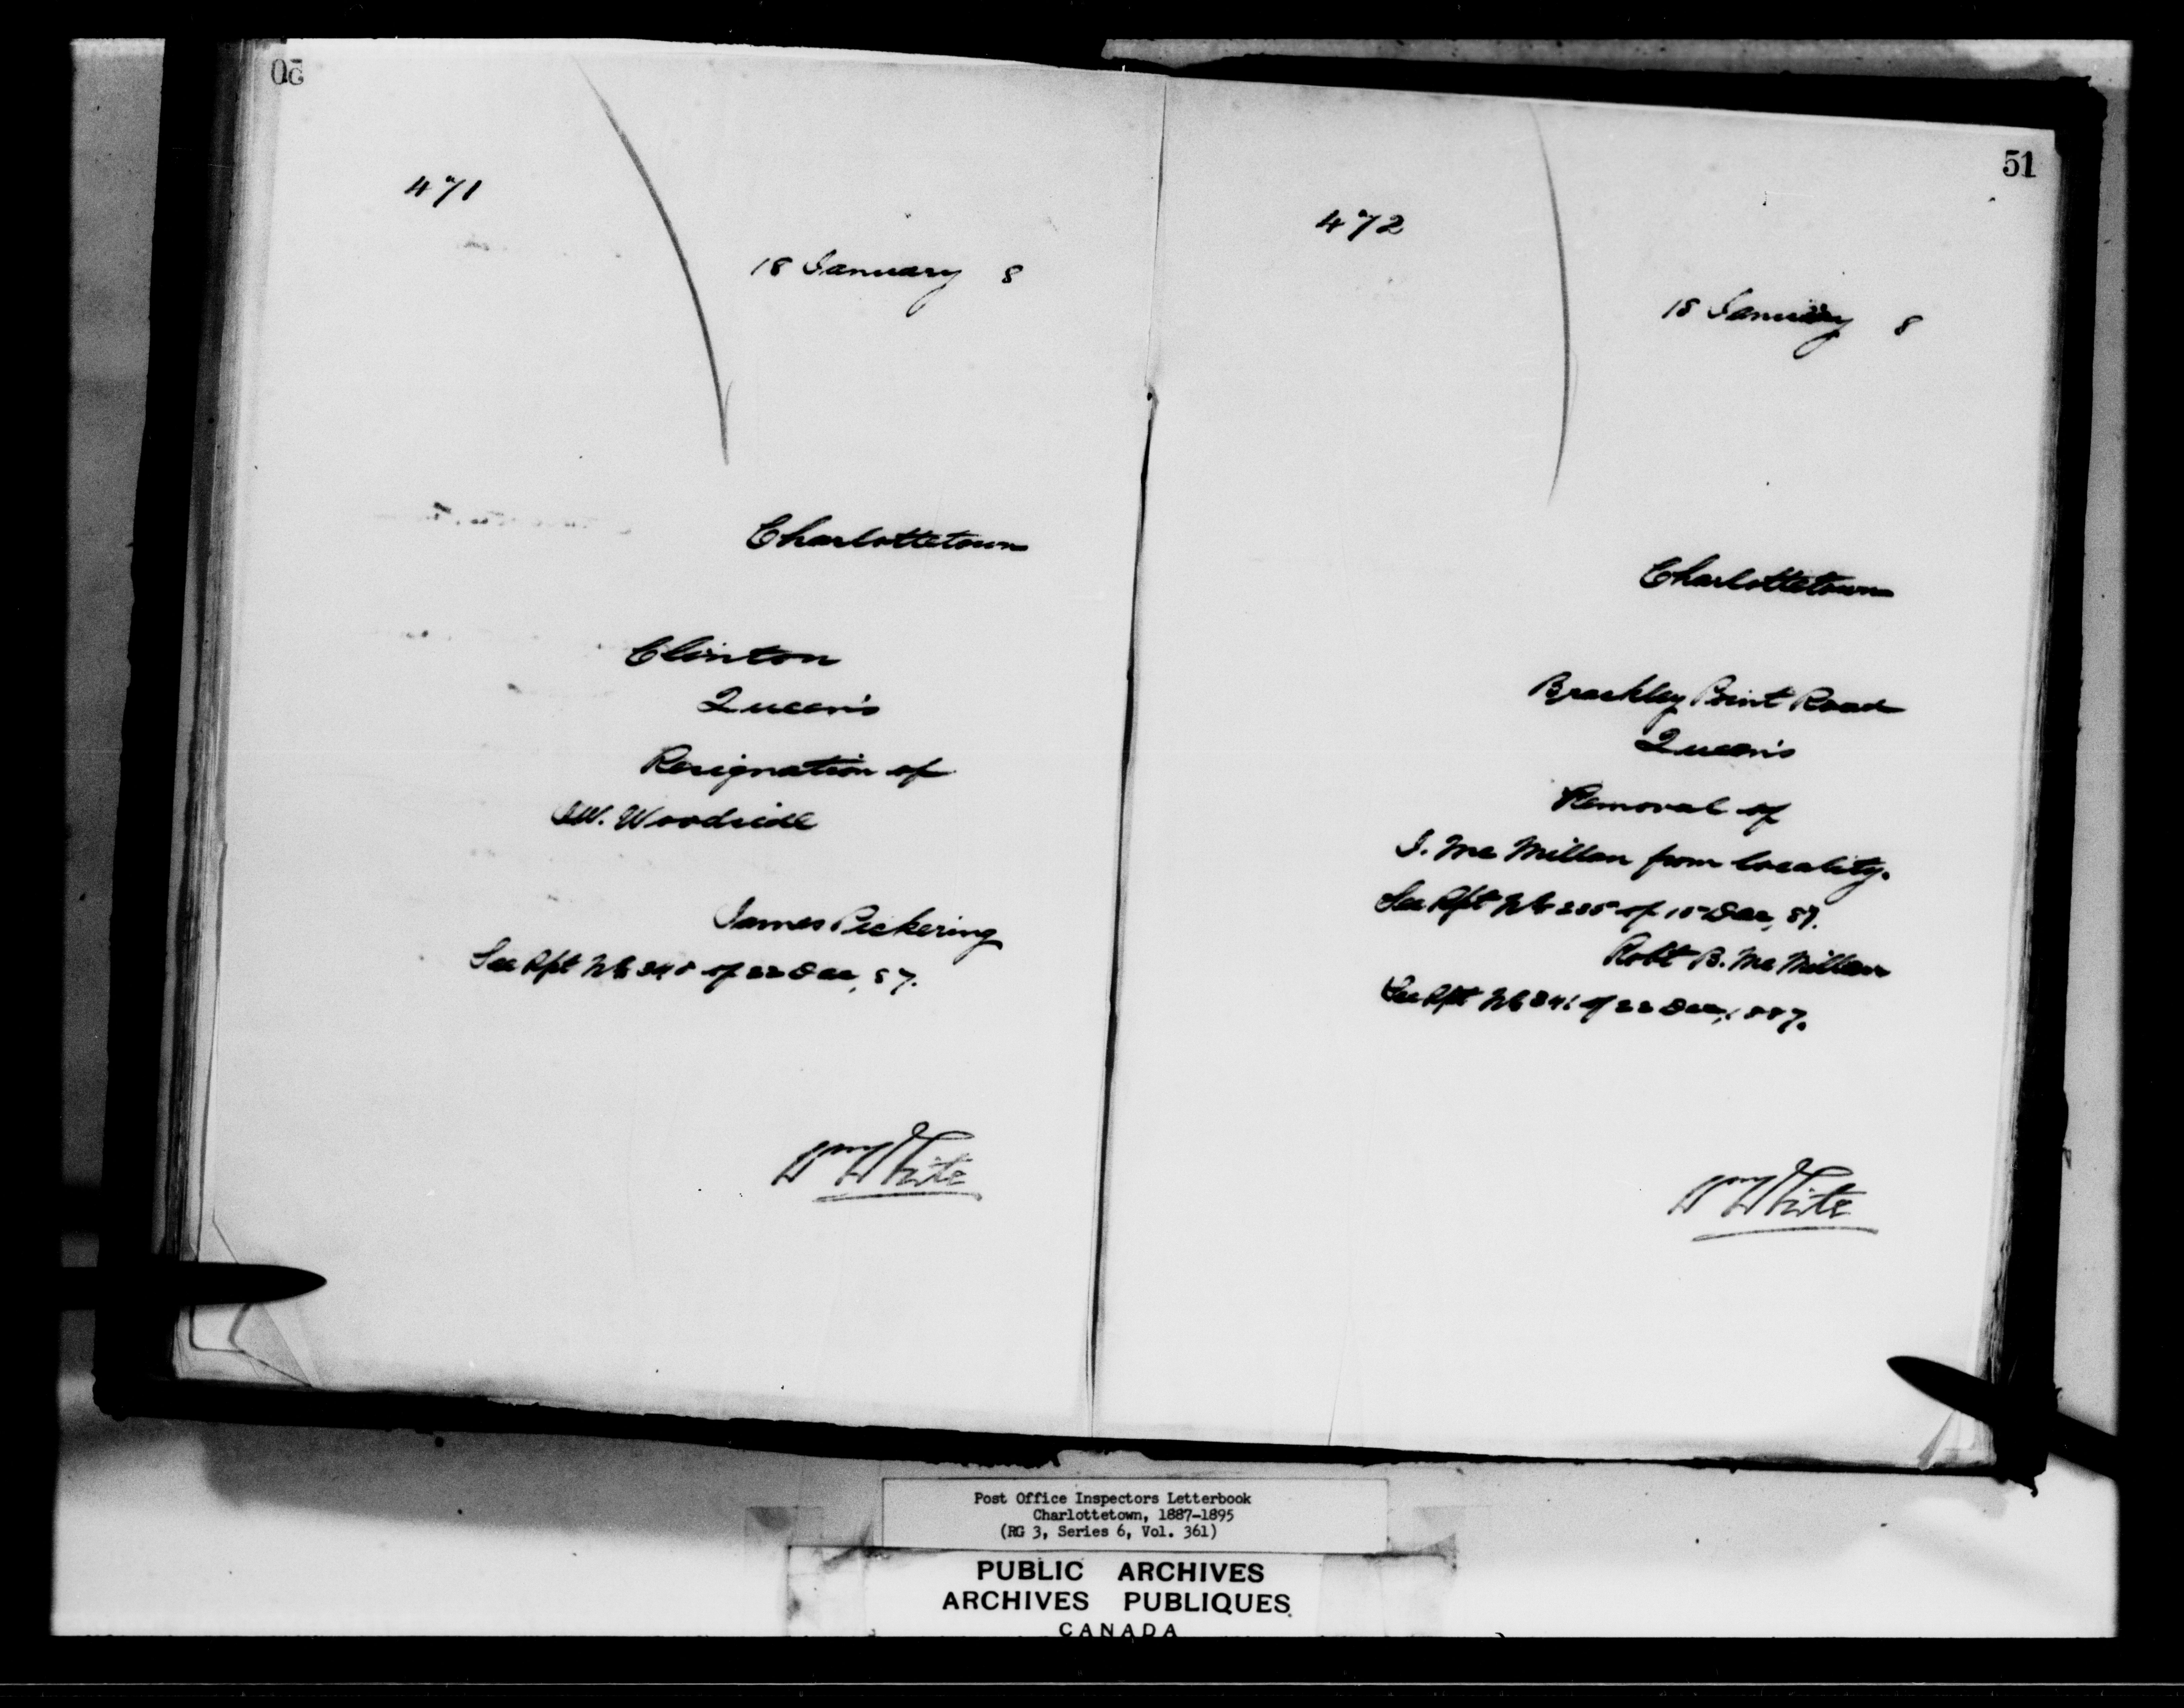 50
471
18 January 8
Charlottetown
Clinton
Queen's
Resignation of
J.W. Woodside
James Pickering
See Rpt No 340 of 22 Dec, 87.
Wm White
51
472
18 January 8
Charlottetown
Brackley Point Road
Queen's
Removal of
J. McMillan from locality.
See Rpt No 335 of 15 Dec, 87.
Robt B. McMillan
See Rpt No 341 of 22 Dec, 1887.
Wm White
Post Office Inspectors Letterbook
Charlottetown, 1887-1895
(RG 3, Series 6, Vol. 361)
PUBLIC ARCHIVES
ARCHIVES PUBLIQUES
CANADA